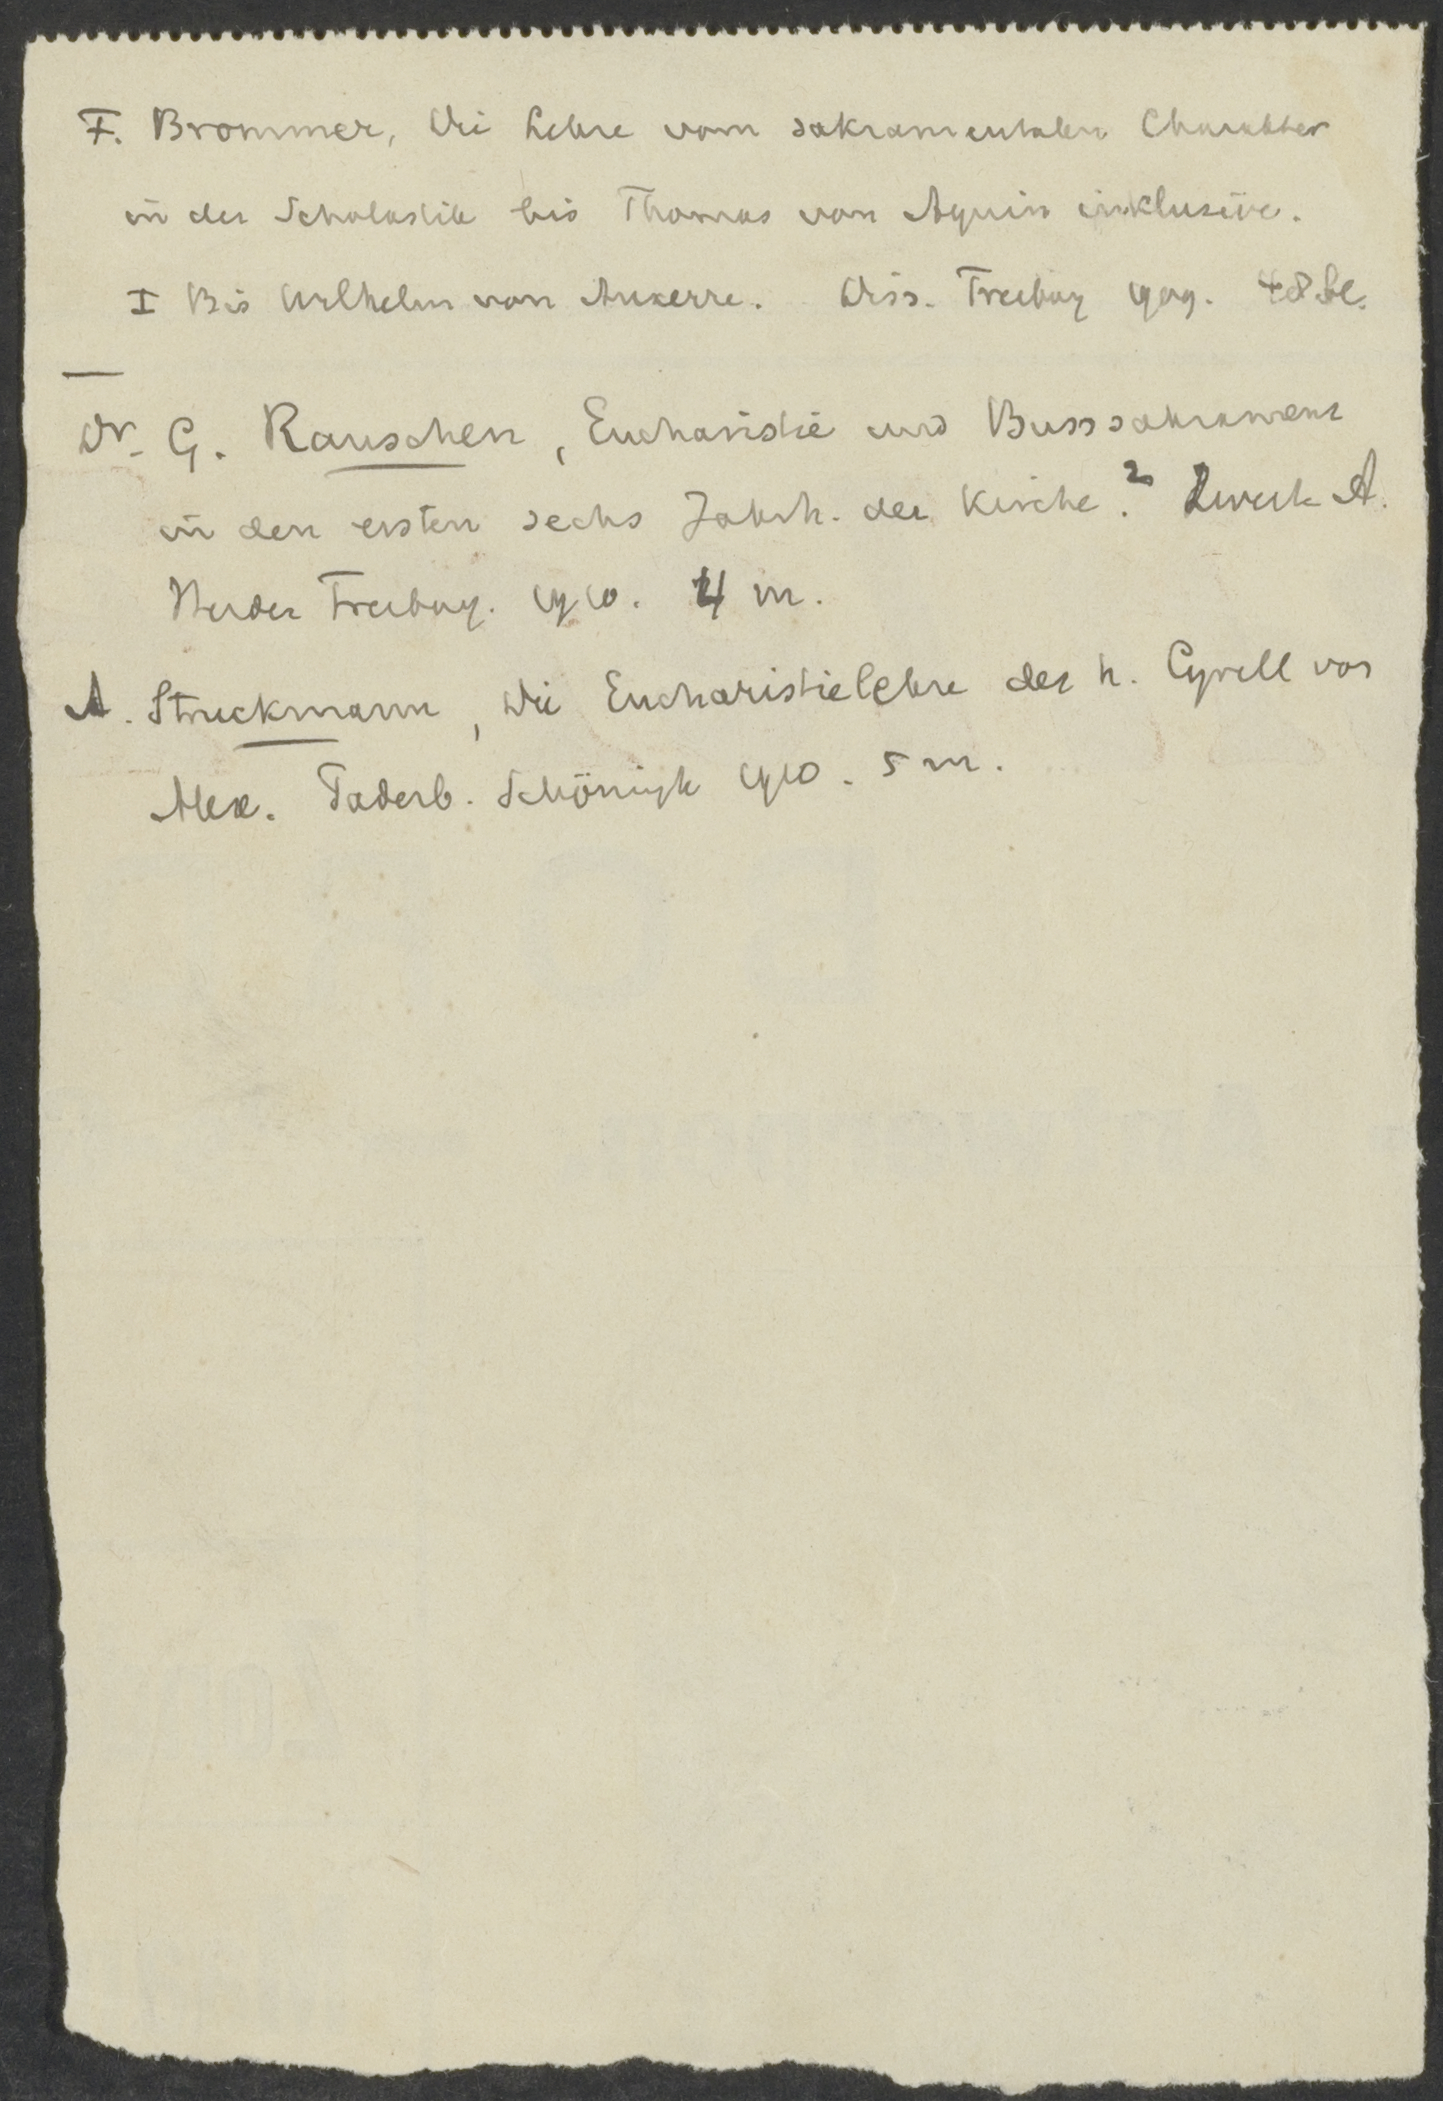 F. Brommer, Die Lehre vom sakramentalen Charakter
in der Scholastik bis Thomas von Aquin inklusive.
I Bis Wilhelm von Auxerre. Diss. Freiburg 909. 48
Dr. G. Rauschen, Eucharistie und Busssakrament
in den ersten sechs Jahrh. der Kirche.² A.
Herder Freiburg. 910. 4 M.
A. Struckmann, Die Eucharistielehre des h. Cyrill von
Alex. Paderb. Schöningh 910. 5 M.